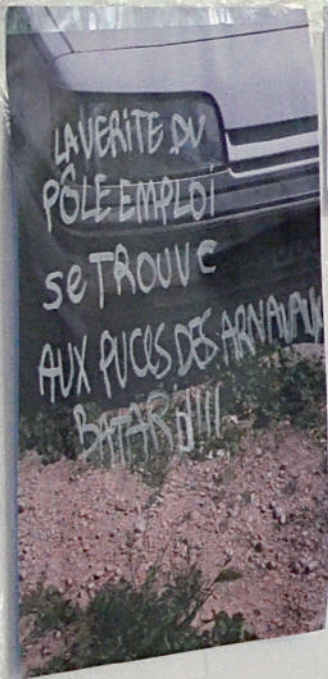 LA VERITE DU
PÔLE EMPLOI
se TROUVE
AUX PUCES DES ARNAVAUX
BATARD!!!